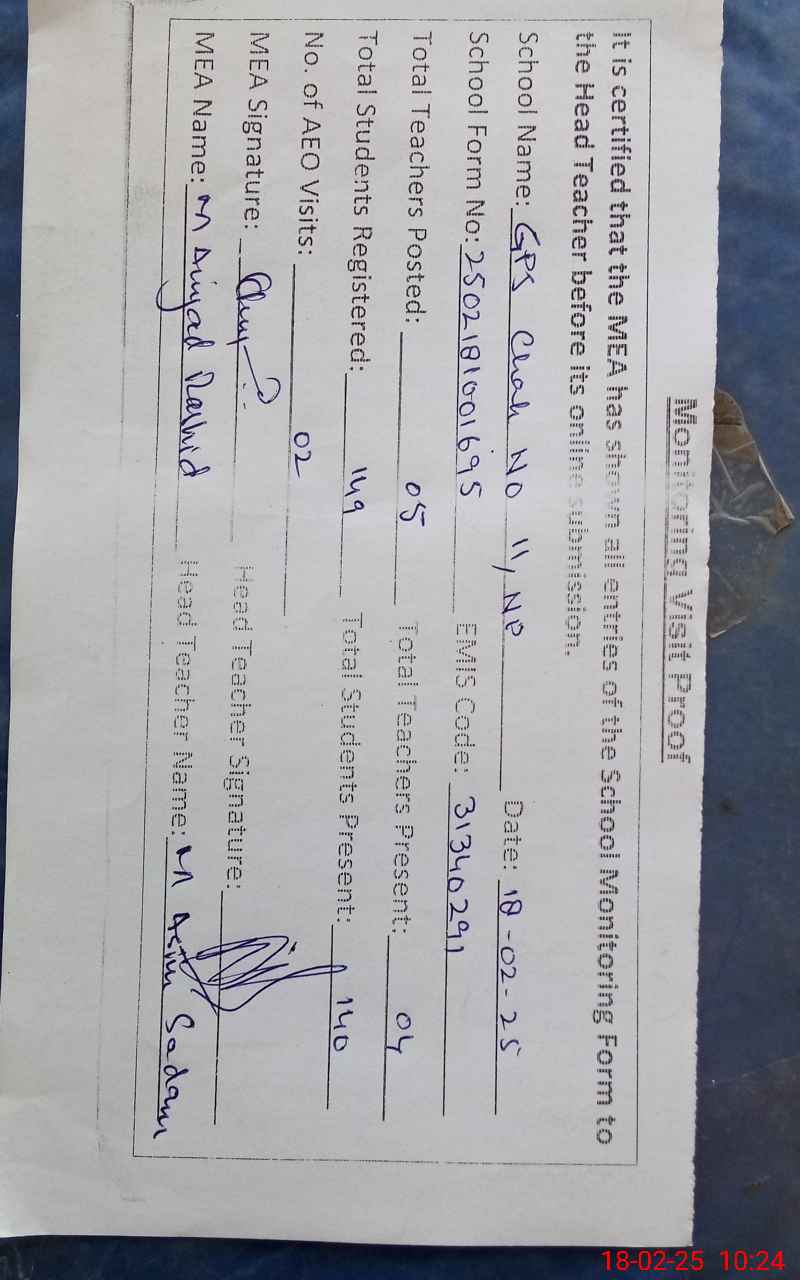 Monitoring Visit Proof
It is certified that the MEA has shown all entries of the School Monitoring Form to
the Head Teacher before its online submission.
School Name: GPS Chah No 11, NP Date: 18-02-25
School Form No: 2502181001695 EMIS Code: 31340291
Total Teachers Posted: 05 Total Teachers Present: 04
Total Students Registered: 149 Total Students Present: 140
No. of AEO Visits: 02
MEA Signature: Head Teacher Signature:
MEA Name: M Amjad Rashid Head Teacher Name: M Asim Sadam
18-02-25 10:24